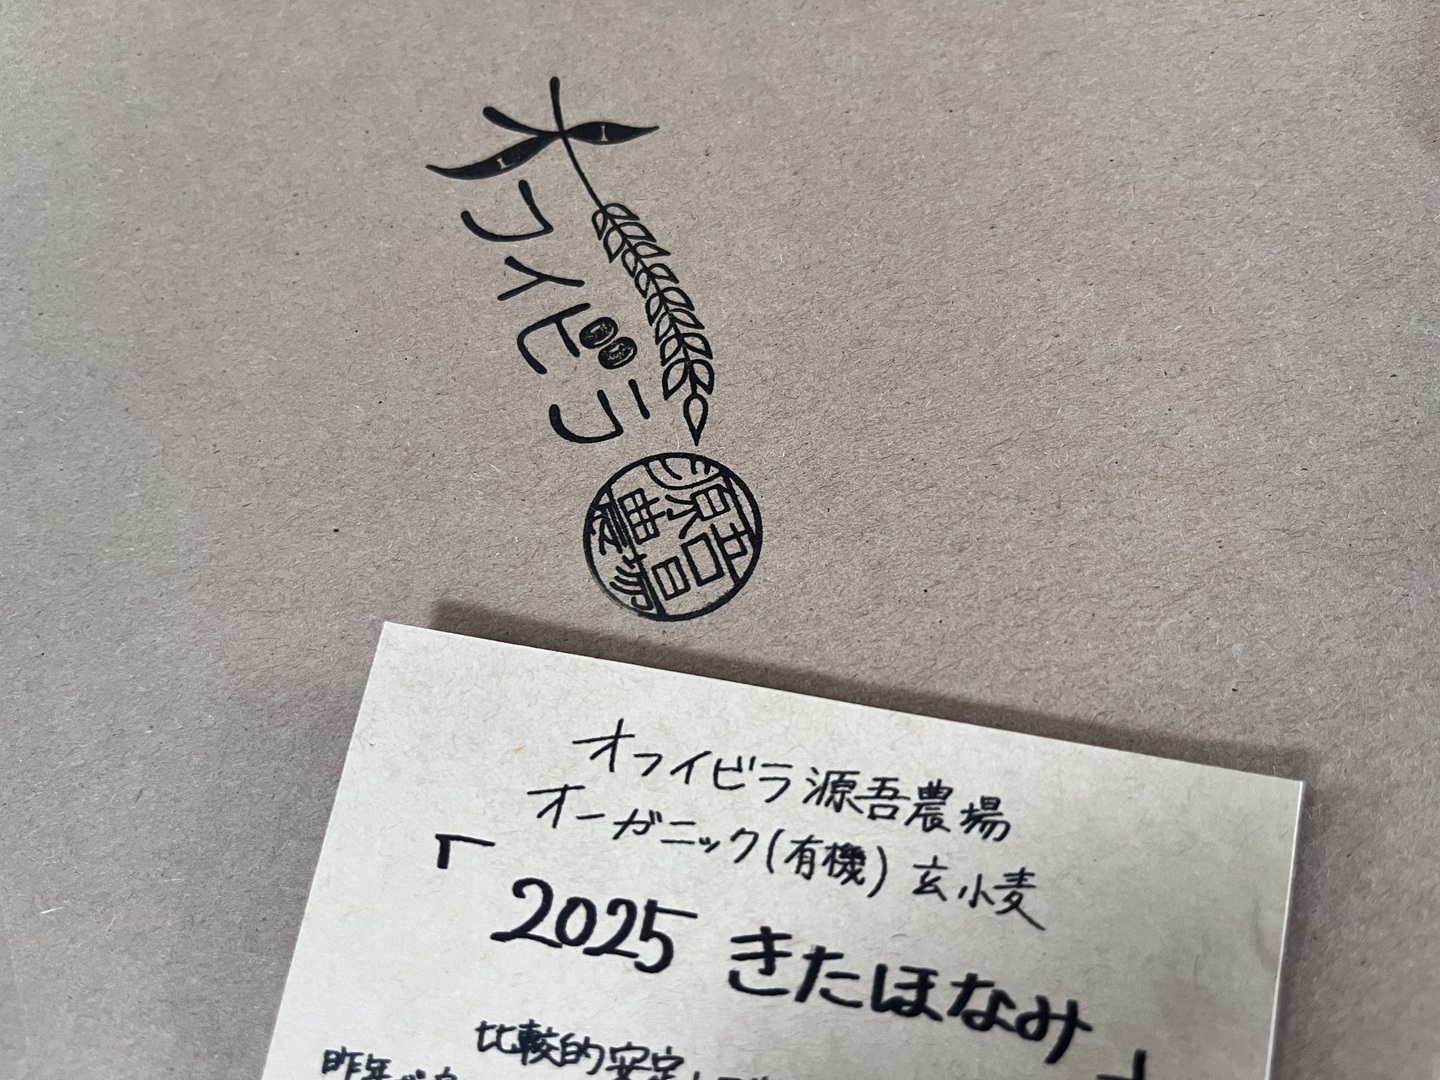 オフイビラ
源吾
農場
オフイビラ 源吾農場
オーガニック(有機) 玄小麦
「2025 きたほなみ
比較的安定
昨年